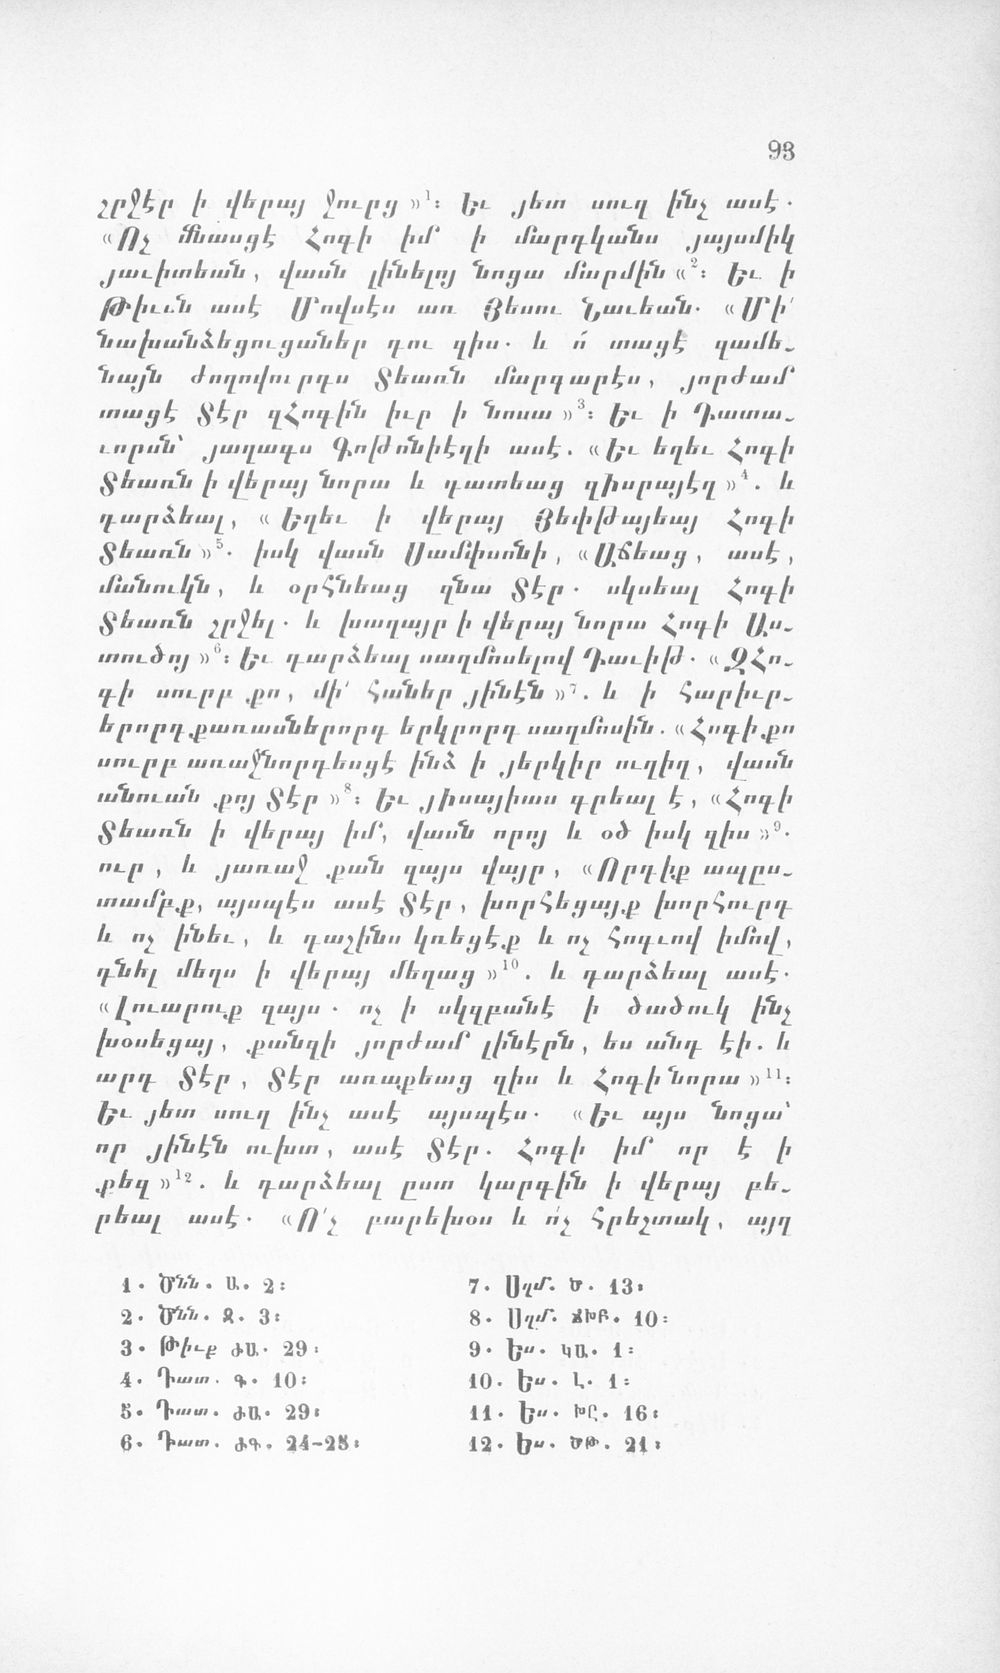 93
շրջէր ի վերայ ջուրց»¹։ Եւ յետ սուղ ինչ ասէ.
«Ոչ մնասցէ Հոգի իմ ի մարդկանս յայսմիկ
յաւիտեան, վասն լինելոյ նոցա մարմին«²։ Եւ ի
Թիււն ասէ Մովսէս առ Յեսու Նաւեան. «Մի՛
նախանձեցուցաներ դու զիս. և ո՜ տացէ զամե-
նայն ժողովուրդս Տեառն մարգարէս, յորժամ
տացէ Տէր զՀոգին իւր ի նոսա»³։ Եւ ի Դատա-
ւորսն՝ յաղագս Գոթոնիէղի ասէ. «Եւ եղեւ Հոգի
Տեառն ի վերայ նորա և դատեաց զիսրայէղ»⁴. և
դարձեալ, «Եղեւ ի վերայ Յեփթայեայ Հոգի
Տեառն»⁵. իսկ վասն Սամփսոնի, «Աճեաց, ասէ,
մանուկն, և օրհնեաց զնա Տէր. սկսեալ Հոգի
Տեառն շրջել. և խաղայր ի վերայ նորա Հոգի Աս-
տուծոյ»⁶։ Եւ դարձեալ սաղմոսելով Դաւիթ. «ԶՀո-
գի սուրբ քո, մի՛ հաներ յինէն»⁷. և ի հարիւր-
երորդ քառասներորդ երկրորդ սաղմոսին. «Հոգի քո
սուրբ առաջնորդեսցէ ինձ ի յերկիր ուղիղ, վասն
անուան քոյ Տէր»⁸։ Եւ յիսայիաս գրեալ է, «Հոգի
Տեառն ի վերայ իմ, վասն որոյ և օծ իսկ զիս»⁹.
ուր, և յառաջ քան զայս վայր, «Որդիք ապըս-
տամբք, այսպէս ասէ Տէր, խորհեցայք խորհուրդ
և ոչ ինեւ, և դաշինս կռեցէք և ոչ հոգւով իմով,
դնել մեղս ի վերայ մեղաց»¹⁰. և դարձեալ ասէ.
«Լուարուք զայս. ոչ ի սկզբանէ ի ծածուկ ինչ
խօսեցայ, քանզի յորժամ լինէրն, ես անդ էի. և
արդ Տէր, Տէր առաքեաց զիս և Հոգի նորա»¹¹։
Եւ յետ սուղ ինչ ասէ այսպէս. «Եւ այս նոցա՝
որ յինէն ուխտ, ասէ Տէր. Հոգի իմ որ է ի
քեզ»¹². և դարձեալ ըստ կարգին ի վերայ բե-
րեալ ասէ. «Ո՛չ բարեխօս և ո՛չ հրեշտակ, այղ
1. Ծնն. Ա. 2։
2. Ծնն. Զ. 3։
3. Թիւք ԺԱ. 29։
4. Դատ. Գ. 10։
5. Դատ. ԺԱ. 29։
6. Դատ. ԺԳ. 24-25։
7. Սղմ. Ծ. 13։
8. Սղմ. ՃԽԲ. 10։
9. Ես. ԿԱ. 1։
10. Ես. Լ. 1։
11. Ես. ԽԸ. 16։
12. Ես. ԾԹ. 21։